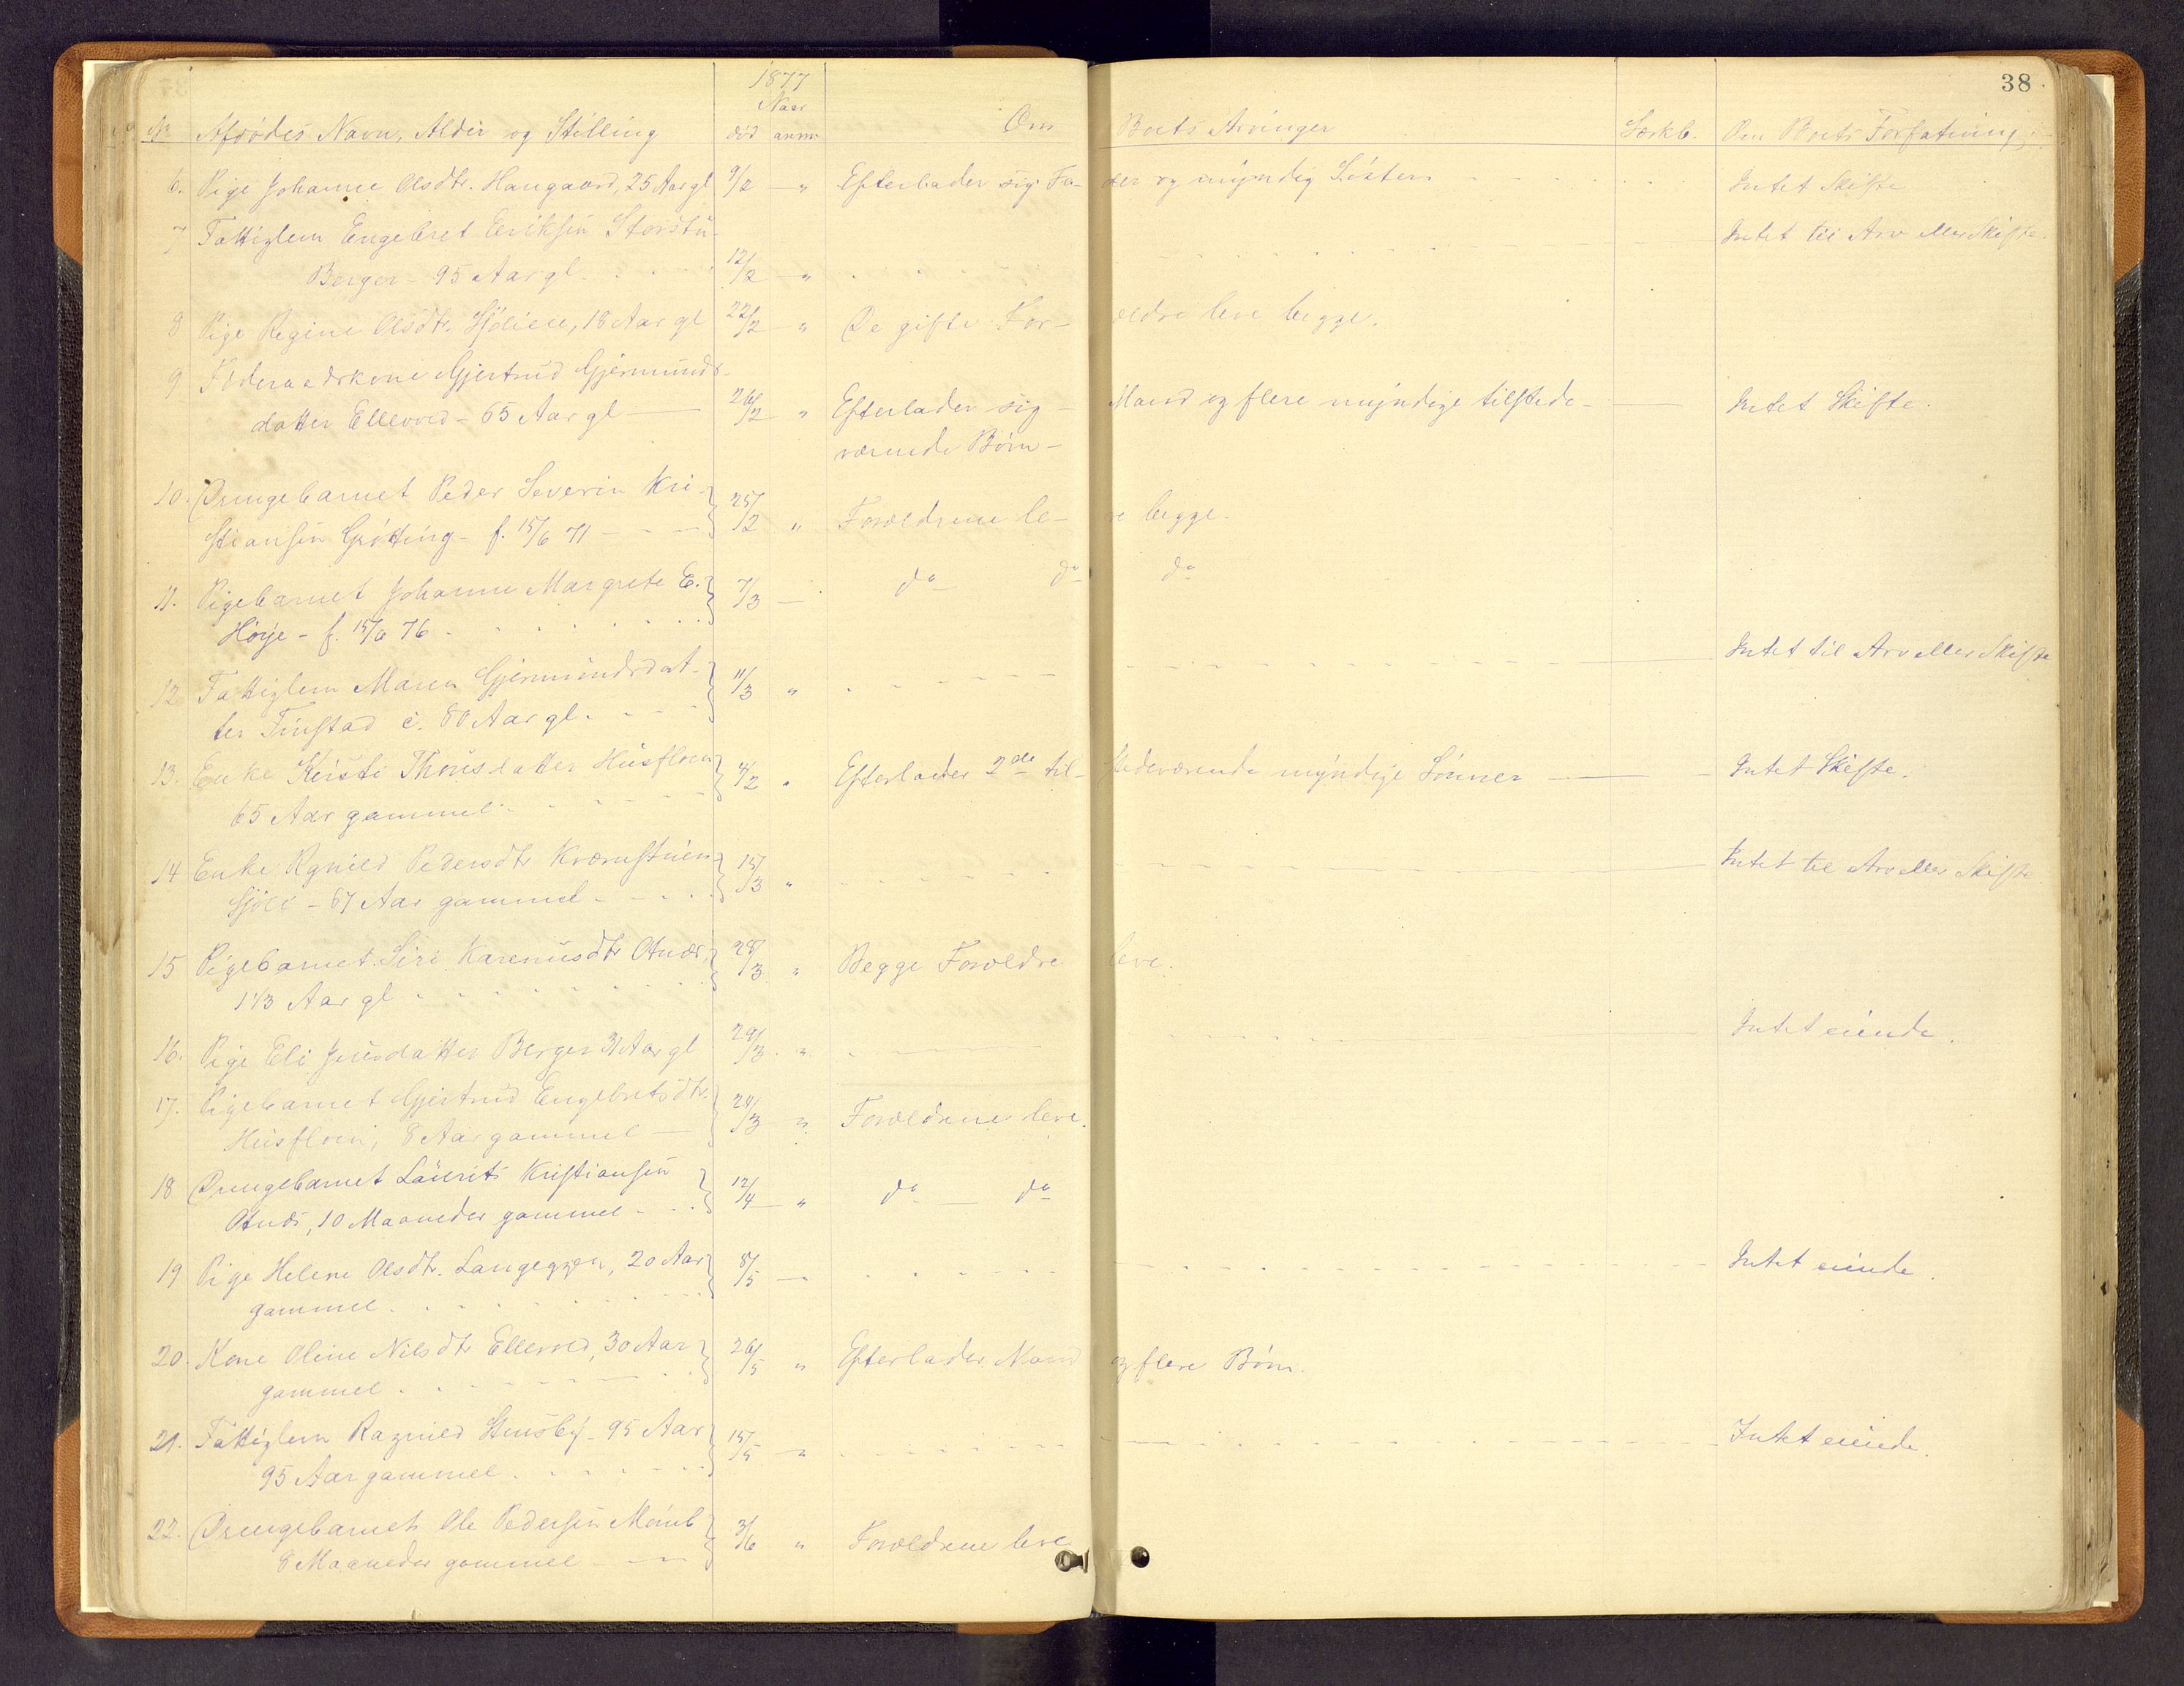 38
1877
Naar
Nr Afdødes Navn, Alder og Stilling død anm. Om Boets Arvinger Særkb. Om Boets Forfatning
6. Pige Johanne Olsdtr. Haugaard, 25 Aar gl 9/2 " Efterlader sig Fader og myndig Søster Intet Skifte
7 Fattiglem Engebret Eriksen Storstu- Intet til Arv eller Skifte.
Berger - 95 Aar gl. 12/2 "
8 Pige Regine Olsdtr. Sjølien, 18 Aar gl 22/2 " De gifte Forældre leve begge.
9 Føderaadskone Gjertrud Gjermunds-
datter Ellevold - 65 Aar gl 26/2 " Efterlader sig Mand og flere myndige tilstede- Intet Skifte.
værende Børn -
10. Drengebarnet Peder Severin Kri-
stiansen Grøtting - f. 15/6 71 25/2 " Forældrene leve begge.
11. Pigebarnet Johanne Margrete E. 7/3 do do do
Høye - f. 15/6 76
12 Fattiglem Maren Gjermundsdat- 11/3 " Intet til Arv eller Skifte
ter Finstad c. 80 Aar gl.
13. Enke Kristi Thorsdatter Husfloen 4/2 " Efterlader 2de tilstedeværende myndige Sønner Intet Skifte.
65 Aar gammel
14 Enke Ragnild Pedersdtr Kværnstuen 15/3 " Intet til Arv eller Skifte
Sjøli - 67 Aar gammel
15 Pigebarnet Siri Karenusdtr Otnæs, 28/3 " Begge Forældre leve.
1 1/3 Aar gl
16. Pige Eli Jensdatter Berger 31 Aar gl 29/3 " Intet eiende.
17. Pigebarnet Gjertrud Engebretsdtr.
Husfloen, 8 Aar gammel 24/3 " Forældrene leve.
18 Drengebarnet Laurits Kristiansen
Otnæs, 10 Maaneder gammel 12/4 " do do
19 Pige Helene Olsdtr. Langeggen, 20 Aar 8/5 Intet eiende.
gammel
20. Kone Oline Nilsdtr Ellevold, 30 Aar 26/5 " Efterlader Mand og flere Børn.
gammel
21. Fattiglem Ragnild Stensby - 95 Aar 15/5 " Intet eiende.
95 Aar gammel
22. Drengebarnet Ole Pedersen 3/6 " Forældrene leve
8 Maaneder gammel